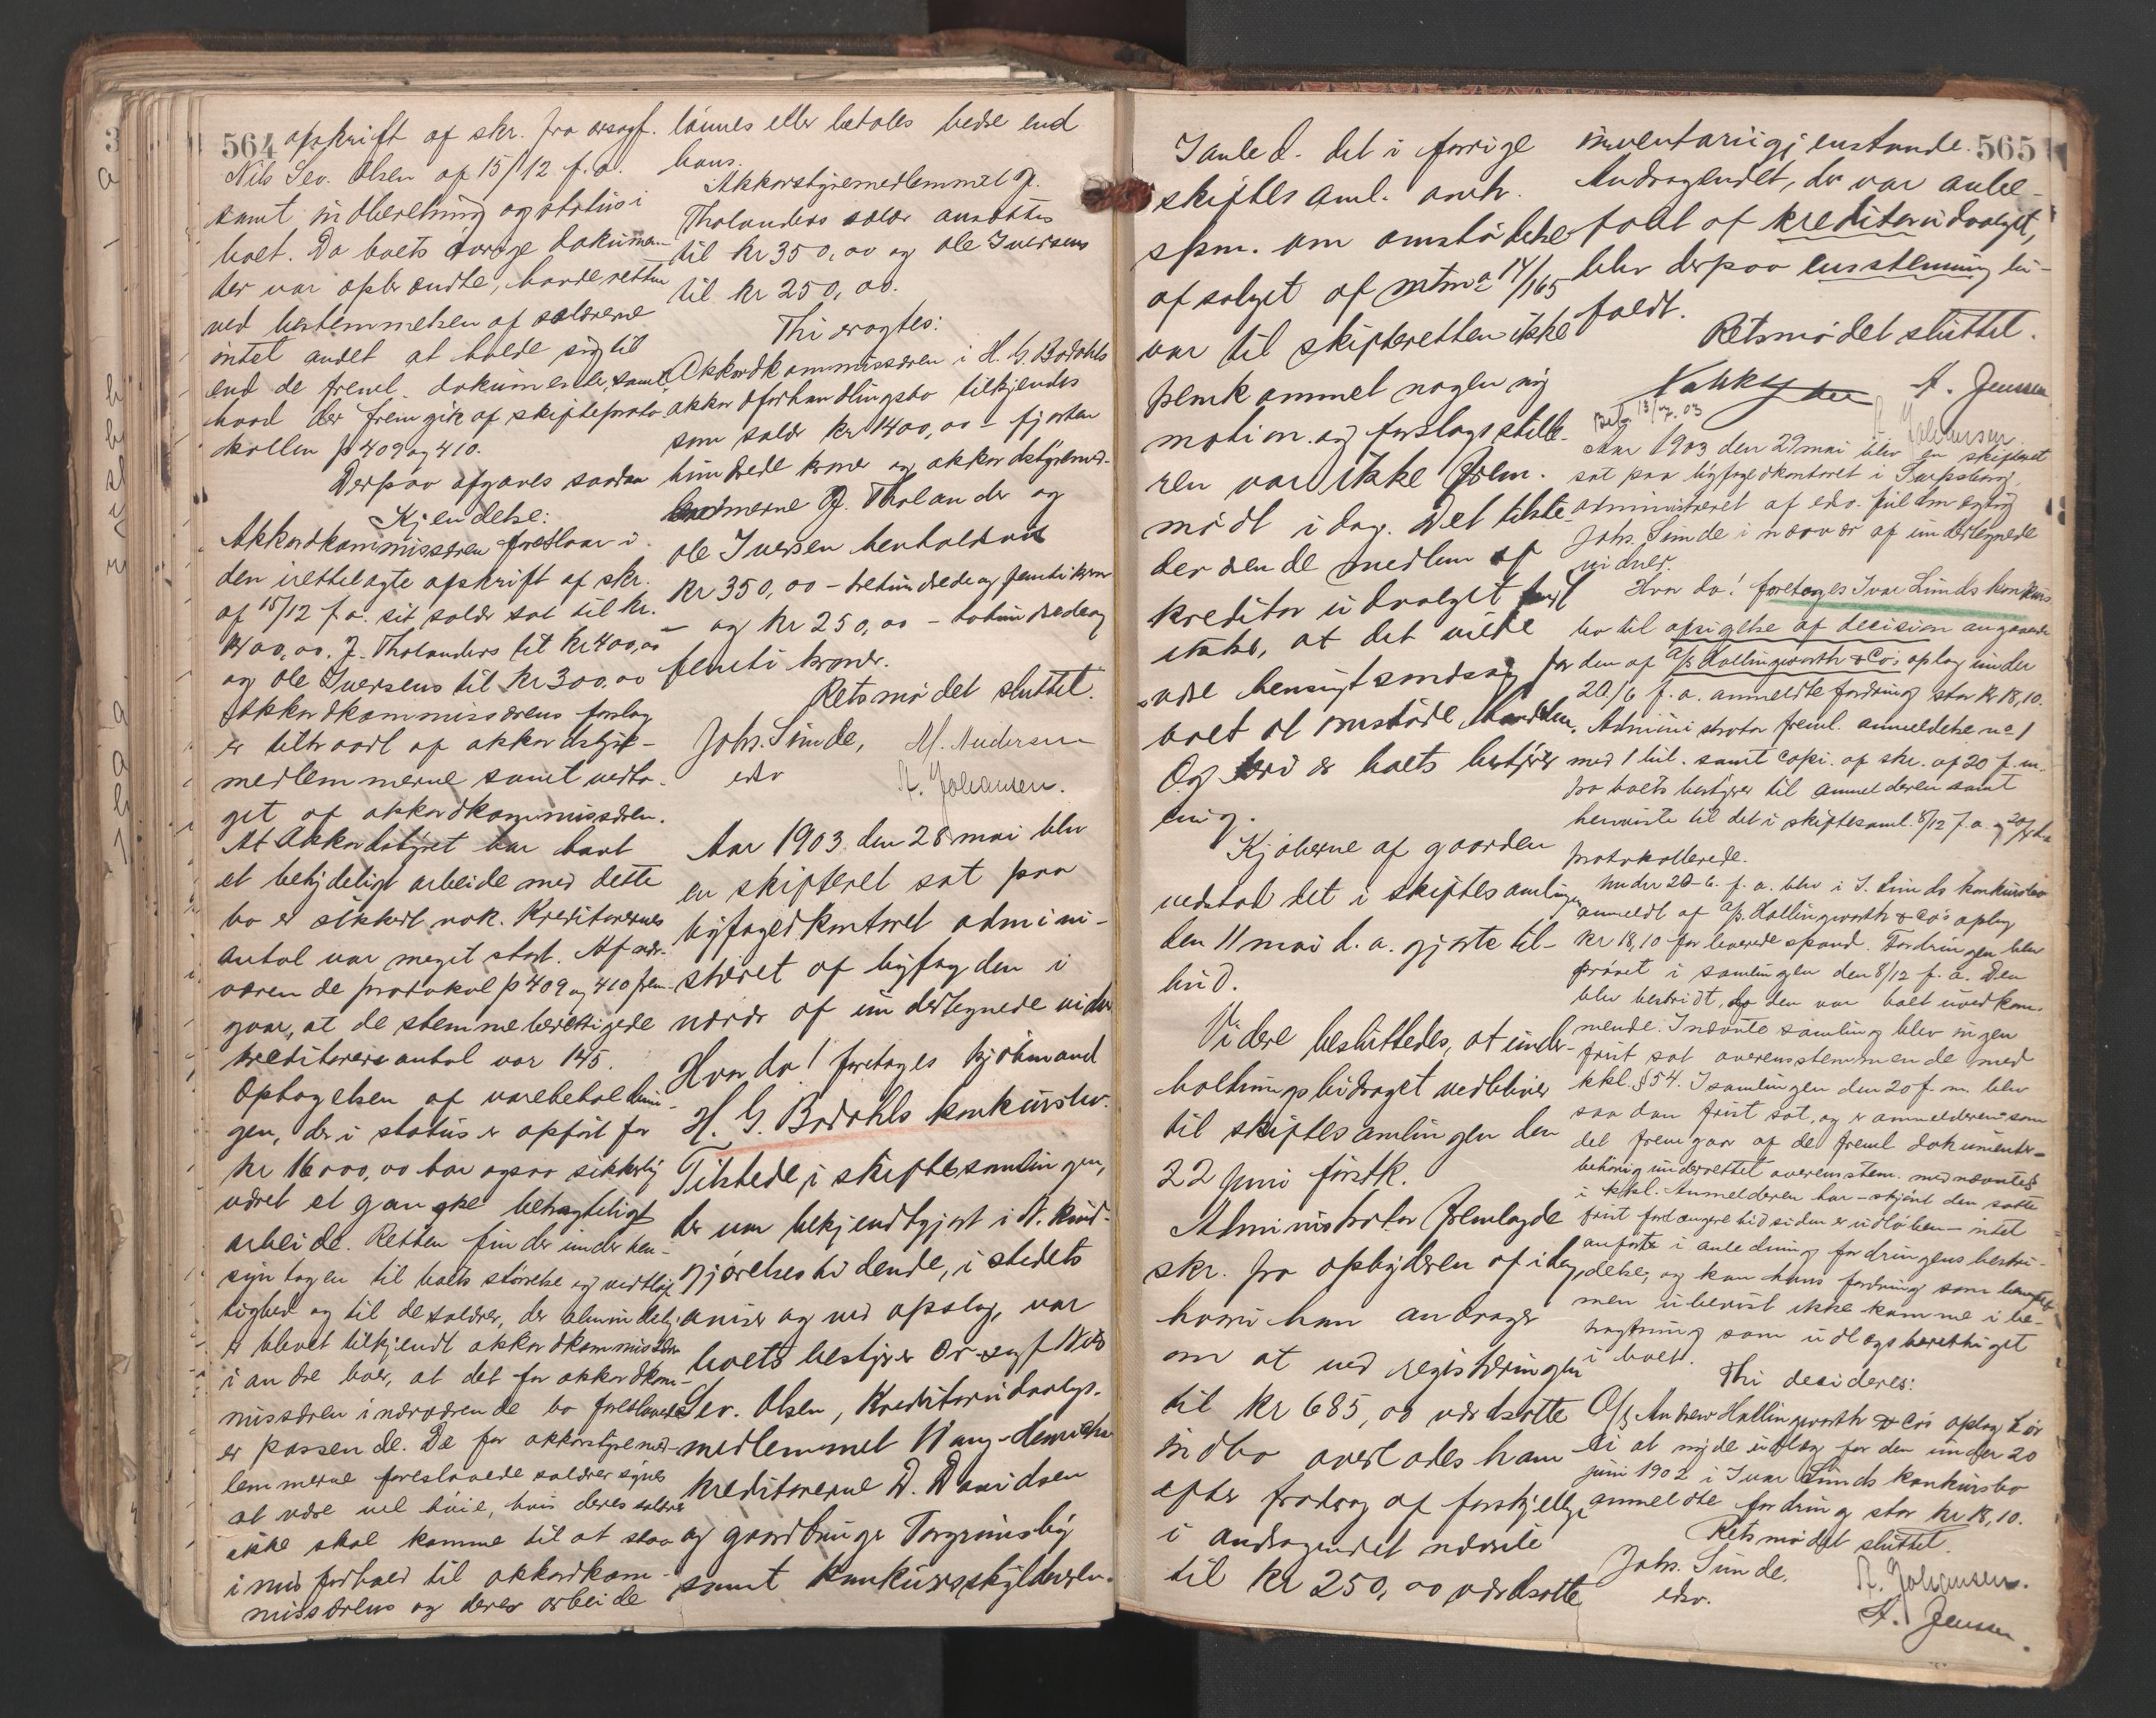 564
afskrift af skr. fra orsagf.
Nils Sev. Olsen af 15/12 f. a.
samt indberetning og status i
boet. Da boets øvrige dokumen-
ter var opbrændte, havde retten
ved bestemmelsen af salærerne
intet andet at holde sig til
end de freml. dokumenter, samt
hvad der fremgik af skifteproto-
kollen p 409 og 410.
Derpaa afgaves saadan
Kjendelse:
Akkordkommissæren foreslaar i
den irettelagte afskrift af skr.
af 15/12 f. a. sit salær sat til kr.
1400,00. J. Tholanders til kr 400,00
og Ole Iversens til kr 300,00
Akkordkommissærens forslag
er tiltraadt af akkordstyre-
medlemmerne samt vedta-
get af akkordkommissæren.
At Akkordstyret har havt
et betydeligt arbeide med dette
bo er sikkert nok. Kreditorernes
antal var meget stort. Af nær-
værende protokol p 409 og 410 frem-
gaar, at de stemmeberettigede
kreditorers antal var 145.
Optagelsen af varebeholdnin-
gen, der i status er opført for
kr 16000,00 har ogsaa sikkerlig
været et ganske betragteligt
arbeide. Retten finder under hen-
syn tagen til boets størrelse og vidtløf-
tighed og til de salærer, der almindelig
er blevet tilkjendt akkordkommissærer
i andre boer, at det for akkordkom-
missæren i nærværende bo foreslaaede
er passende. De for akkordstyremed-
lemmerne foreslaaede salærer synes
at være vel høie, hvis deres salærer
ikke skal komme til at staa
i misforhold til akkordkom-
missærens og deres arbeide
lønnes eller betales bedre end
hans.
Akkordstyremedlemmet J.
Tholanders salær ansættes
til kr 350,00 og Ole Iversens
til kr 250,00.
Thi eragtes:
Akkordkommissæren i H. G. Bodahls
akkordforhandlingsbo tilkjendes
som salær kr 1400,00 – fjorten
hundrede kroner og akkordstyremed-
lemmerne J. Tholander og
Ole Iversen henholdsvis
kr 350,00 – trehundrede og femti kroner
– og kr 250,00 – tohundrede og
femti kroner.
Retsmødet sluttet.
Johs. Sunde, M. Andersen
edsv A. Johansen.
Aar 1903 den 28 mai blev
en skifteret sat paa
byfogedkontoret admini-
streret af byfogden i
nærvær af undertegnede vidner
Hvor da! foretoges kjøbmand
H. G. Bodahls konkursbo.
Tilstede i skiftesamlingen,
der var bekjendtgjort i N. Kund-
gjørelsestidende, i stedets
aviser og ved opslag, var
boets bestyrer Or.sagf Nils
Sev. Olsen, Kreditorudvalgs-
medlemmet Wang-
kreditorerne D. Davidsen
og gaardbruger Torgrimsby
samt Konkursskyldneren.
565
I anled. det i forrige
skiftes aml. omh.
spm. om omstødelse
af salget af mtrn 14/165
var til skifteretten ikke
fremkommet nogen ny
motion og forslagsstille-
ren var ikke frem-
mødt idag. Det tilste-
deværende medlem af
kreditorudvalget
at det vilde
være hensigtsmæssig for
boet at omstøde handelen.
Og boets besty
ing.
Kjøberne af gaarden
vedstod det i skiftesamlingen
den 11 mai d. a. gjorte til-
bud.
Videre besluttedes, at under-
holdningsbidraget vedbliver
til skiftesamlingen den
22 juni førstk.
Administrator fremlagde
skr. fra opbyderen af idag,
hvori han andrager
om at ved registreringen
til kr 685,00 værdsatte
indbo overlodes ham
efter fradrag af forskjellige
i andragendet nævnte
til kr 250,00 værdsatte
inventariigjenstande.
Andragendet, der var anbe-
falt af kreditorudvalget,
blev derpaa enstemmig bi-
faldt.
Retsmødet sluttet.
A. Jensen
A. Johansen.
Aar 1903 den 29 mai blev en skifteret
sat paa byfogedkontoret i Sarpsborg,
administreret af edsv. fuldmægtig
Johs. Sunde i nærvær af undertegnede
vidner.
Hvor da! foretoges Ivar Lunds konkurs
bo til afsigelse af decision angaaende
den af A/s Hollingworth & Co's oplag under
20/6 f. a. anmeldte fordring stor kr 18,10.
Administrator freml. anmeldelse no 1
med 1 bil. samt copi. af skr. af 20 f. m.
fra boets bestyrer til anmelderen samt
henviste til det i skiftesaml. 8/12 f. a. og 20/4 d. a
protokollerede.
Under 20-6. f. a. blev i I. Lunds konkursbo
anmeldt af A/s. Hollingworth & Co's oplag
kr 18,10 for leverede spænd. Fordringen blev
prøvet i samlingen den 8/12 f. a. Den
blev bestridt, da den var boet uvedkom-
mende. I nævnte samling blev ingen
frist sat overensstemmende med
kkl. § 54. I samlingen den 20 f. m. blev
saadan frist sat, og er anmelderen som
det fremgaar af de freml. dokumenter –
behørig underrettet overensstem. med nævnte §
i kkl. Anmelderen har – skjønt den satte
frist for længere tid siden er udløben – intet
anført i anledning fordringens bestri-
delse, og kan hans fordring som benægtet
men ubevist ikke komme i be-
tragtning som udlægsberettiget
i boet.
Thi decideres:
A/s Andrew Hollingworth & Co's oplag bør
ei at nyde udlæg for den under 20
juni 1902 i Ivar Lunds konkursbo
anmeldte fordring stor kr 18,10.
Retsmødet sluttet.
Johs. Sunde,
edsv.
A. Johansen.
A. Jensen.